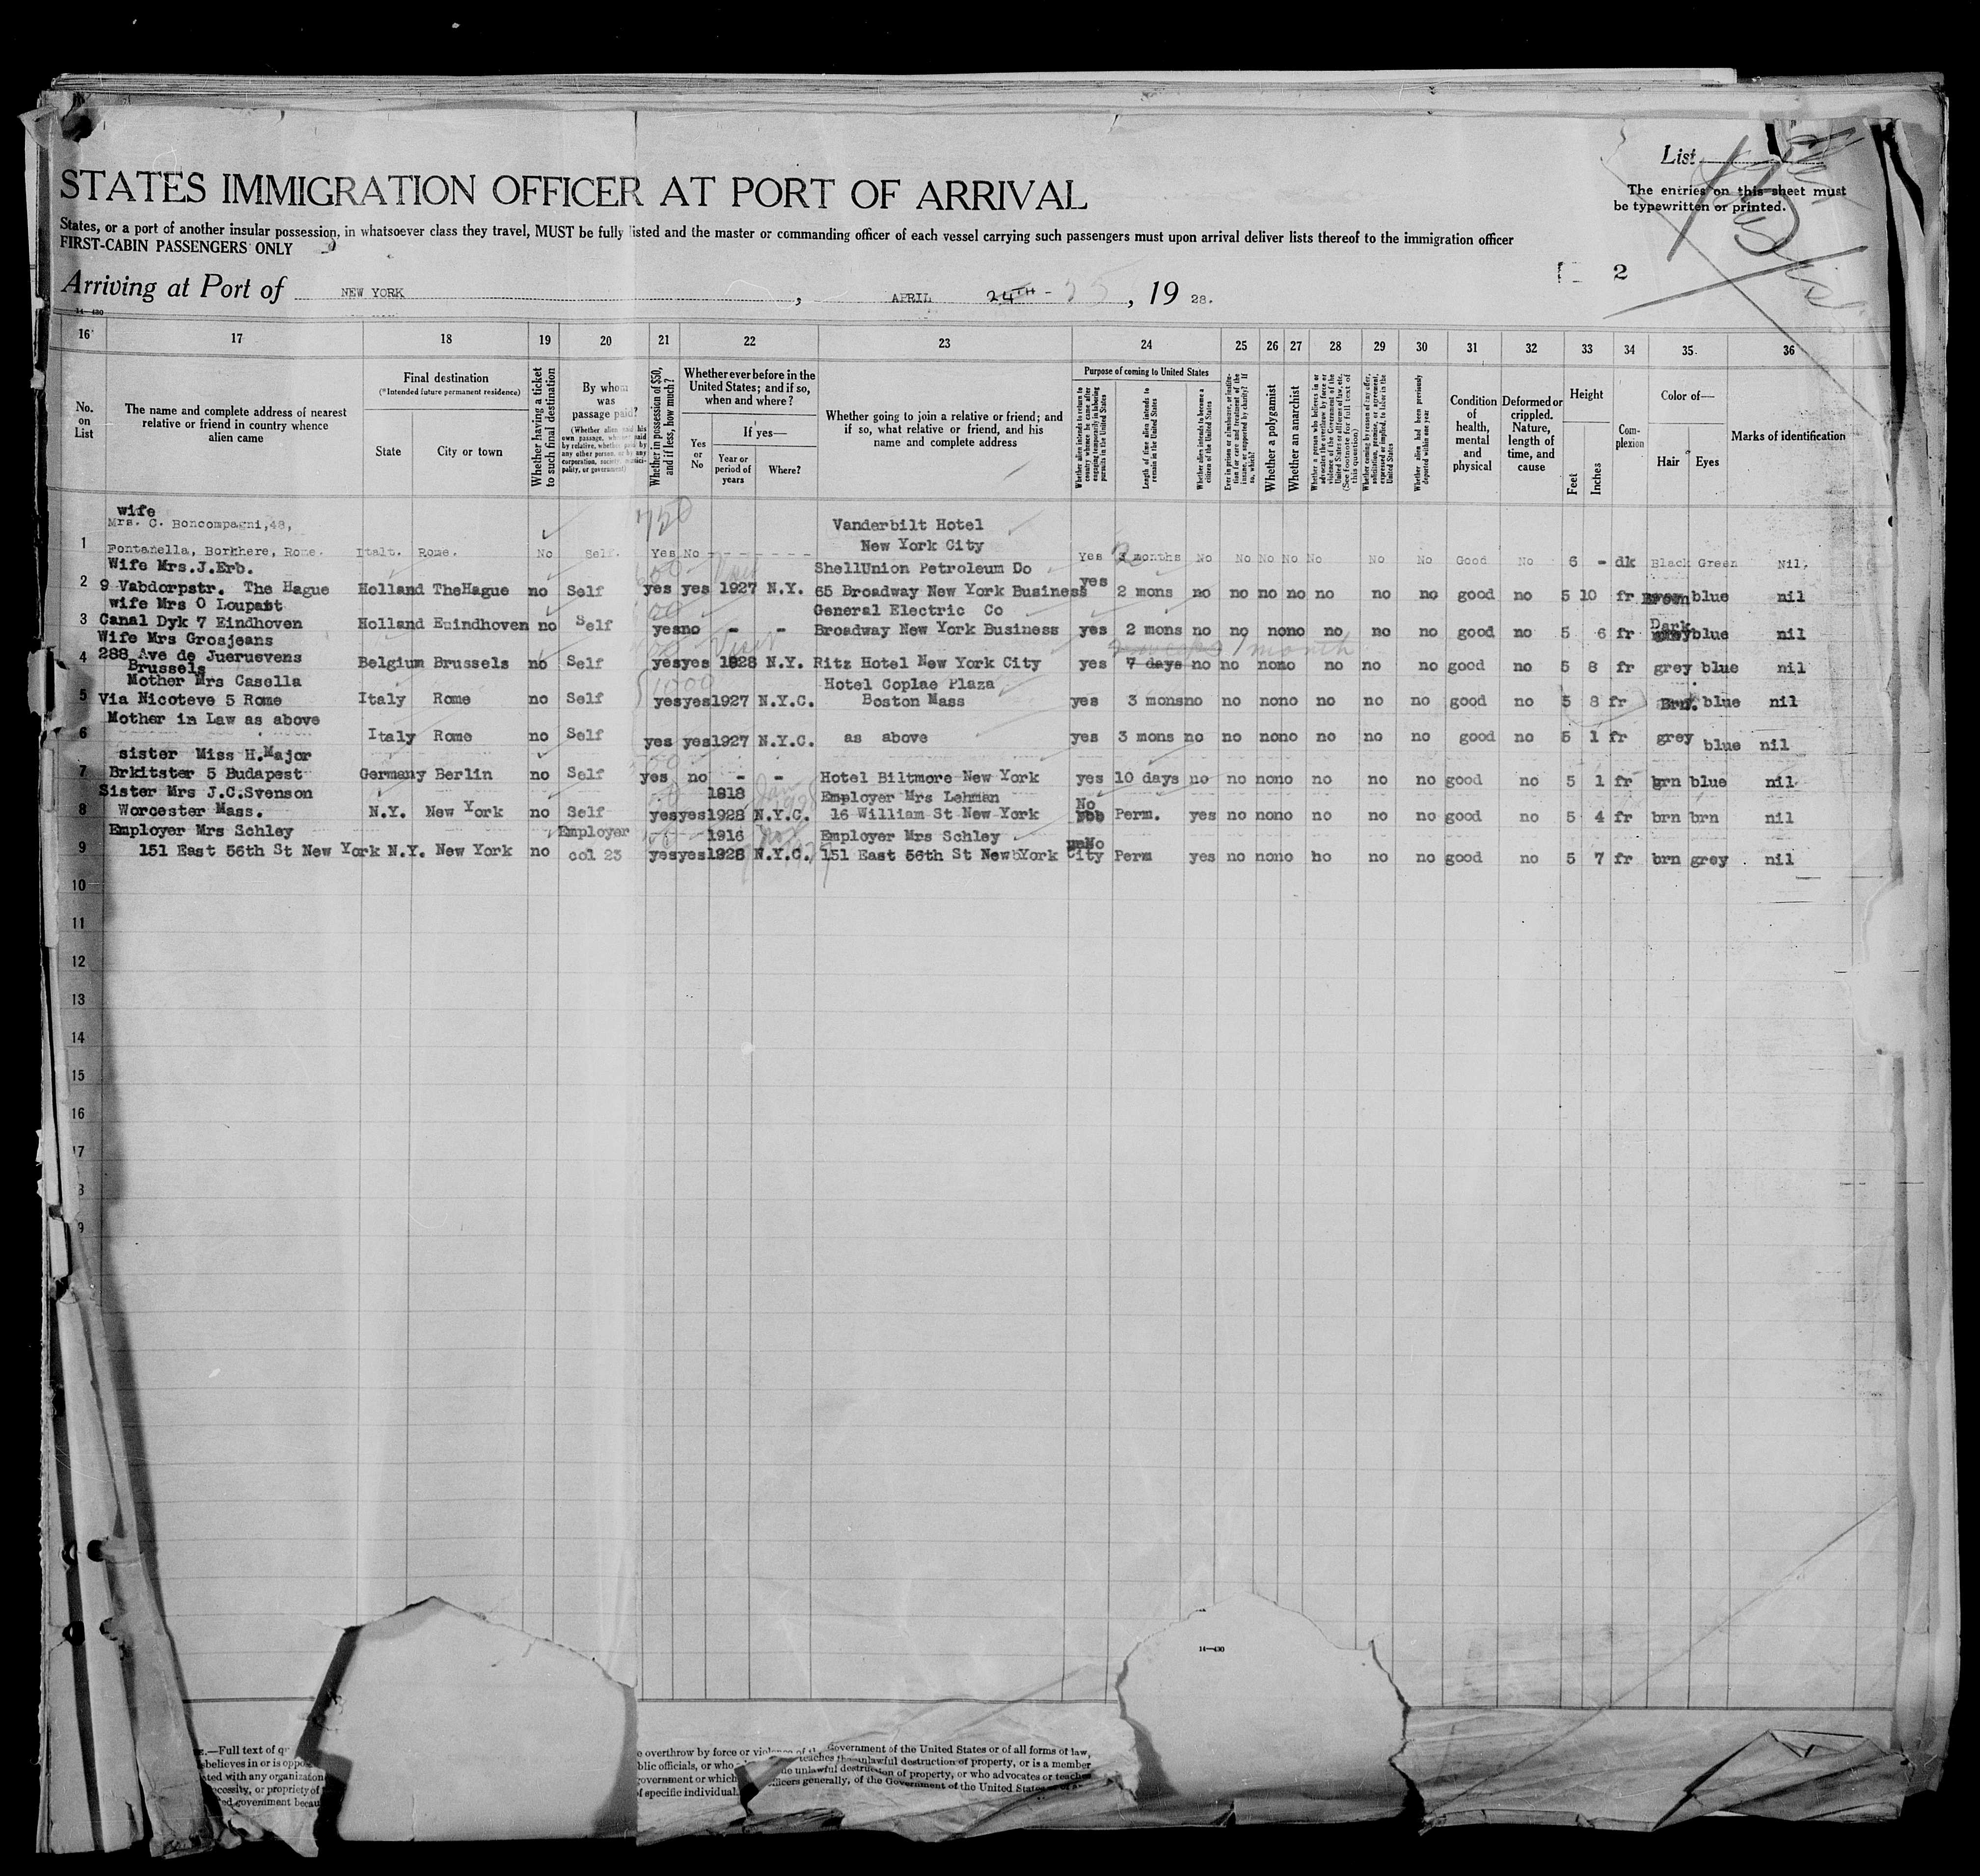 List
The entries on this sheet must
be typewritten or printed.
STATES IMMIGRATION OFFICER AT PORT OF ARRIVAL
States, or a port of another insular possession, in whatsoever class they travel, MUST be fully listed and the master or commanding officer of each vessel carrying such passengers must upon arrival deliver lists thereof to the immigration officer
FIRST-CABIN PASSENGERS ONLY
2
Arriving at Port of NEW YORK, APRIL 24TH - 25, 19 28.
14-430
16 17 18 19 20 21 22 23 24 25 26 27 28 29 30 31 32 33 34 35 36
No. on List
The name and complete address of nearest relative or friend in country whence alien came
Final destination
(*Intended future permanent residence)
State
City or town
Whether having a ticket to such final destination
By whom was passage paid?
(Whether alien paid his own passage, whether paid by relative, whether paid by any other person, or by any corporation, society, municipality, or government)
Whether in possession of $50, and if less, how much?
Whether ever before in the United States; and if so, when and where?
Yes or No
If yes—
Year or period of years
Where?
Whether going to join a relative or friend; and if so, what relative or friend, and his name and complete address
Purpose of coming to United States
Whether alien intends to return to country whence he came after engaging temporarily in laboring pursuits in the United States
Length of time alien intends to remain in the United States
Whether alien intends to become a citizen of the United States
Ever in prison or almshouse, or institution for care and treatment of the insane, or supported by charity? If so, which?
Whether a polygamist
Whether an anarchist
Whether a person who believes in or advocates the overthrow by force or violence of the Government of the United States or all forms of law, etc. (See footnote for full text of this question)
Whether coming by reason of any offer, solicitation, promise, or agreement, expressed or implied, to labor in the United States
Whether alien had been previously deported within one year
Condition of health, mental and physical
Deformed or crippled. Nature, length of time, and cause
Height
Feet
Inches
Complexion
Color of—
Hair
Eyes
Marks of identification
wife
Mrs. C. Boncompagni,48, 750 Vanderbilt Hotel
New York City
1 Fontanella, Borkhere, Rome. Italt. Rome. No Self. Yes No - - - - - - - Yes 3 months No No No No No No No Good No 6 - dk Black Green Nil.
Wife Mrs.J.Erb. ShellUnion Petroleum Do
2 9 Vabdorpstr. The Hague Holland TheHague no Self yes yes 1927 N.Y. 65 Broadway New York Business yes 2 mons no no no no no no no good no 5 10 fr Brown blue nil
wife Mrs O Loupart General Electric Co
3 Canal Dyk 7 Eindhoven Holland Euindhoven no Self yes no - - Broadway New York Business yes 2 mons no no no no no no no good no 5 6 fr Dark blue nil
Wife Mrs Grosjeans Visit 1 month
4 288 Ave de Jueruevens Belgium Brussels no Self yes yes 1928 N.Y. Ritz Hotel New York City yes 7 days no no no no no no no good no 5 8 fr grey blue nil
Brussels
Mother Mrs Casella 1000 Hotel Coplae Plaza
5 Via Nicoteve 5 Rome Italy Rome no Self yes yes 1927 N.Y.C. Boston Mass yes 3 mons no no no no no no no good no 5 8 fr Brn. blue nil
Mother in Law as above
6 Italy Rome no Self yes yes 1927 N.Y.C. as above yes 3 mons no no no no no no no good no 5 1 fr grey blue nil
sister Miss H.Major
7 Brkitster 5 Budapest Germany Berlin no Self yes no - - Hotel Biltmore New York yes 10 days no no no no no no no good no 5 1 fr brn blue nil
Sister Mrs J.C.Svenson 1918 Employer Mrs Lehman No
8 Worcester Mass. N.Y. New York no Self yes yes 1928 N.Y.C. 16 William St New York Perm. yes no no no no no no good no 5 4 fr brn brn nil
Employer Mrs Schley Employer 1916 Employer Mrs Schley No
9 151 East 56th St New York N.Y. New York no col 23 yes yes 1928 N.Y.C. 151 East 56th St New York City Perm yes no no no ho no no good no 5 7 fr brn grey nil
10
11
12
13
14
15
16
17
8
9
14-430
.—Full text of
believes in or is
ted with any organization
propriety of
government
e overthrow by force or violence of the Government of the United States or of all forms of law,
blic officials, or who teaches the unlawful destruction of property, or is a member
government or which the unlawful destruction of property, or who advocates or teaches
of specific individual officers generally, of the Government of the United States